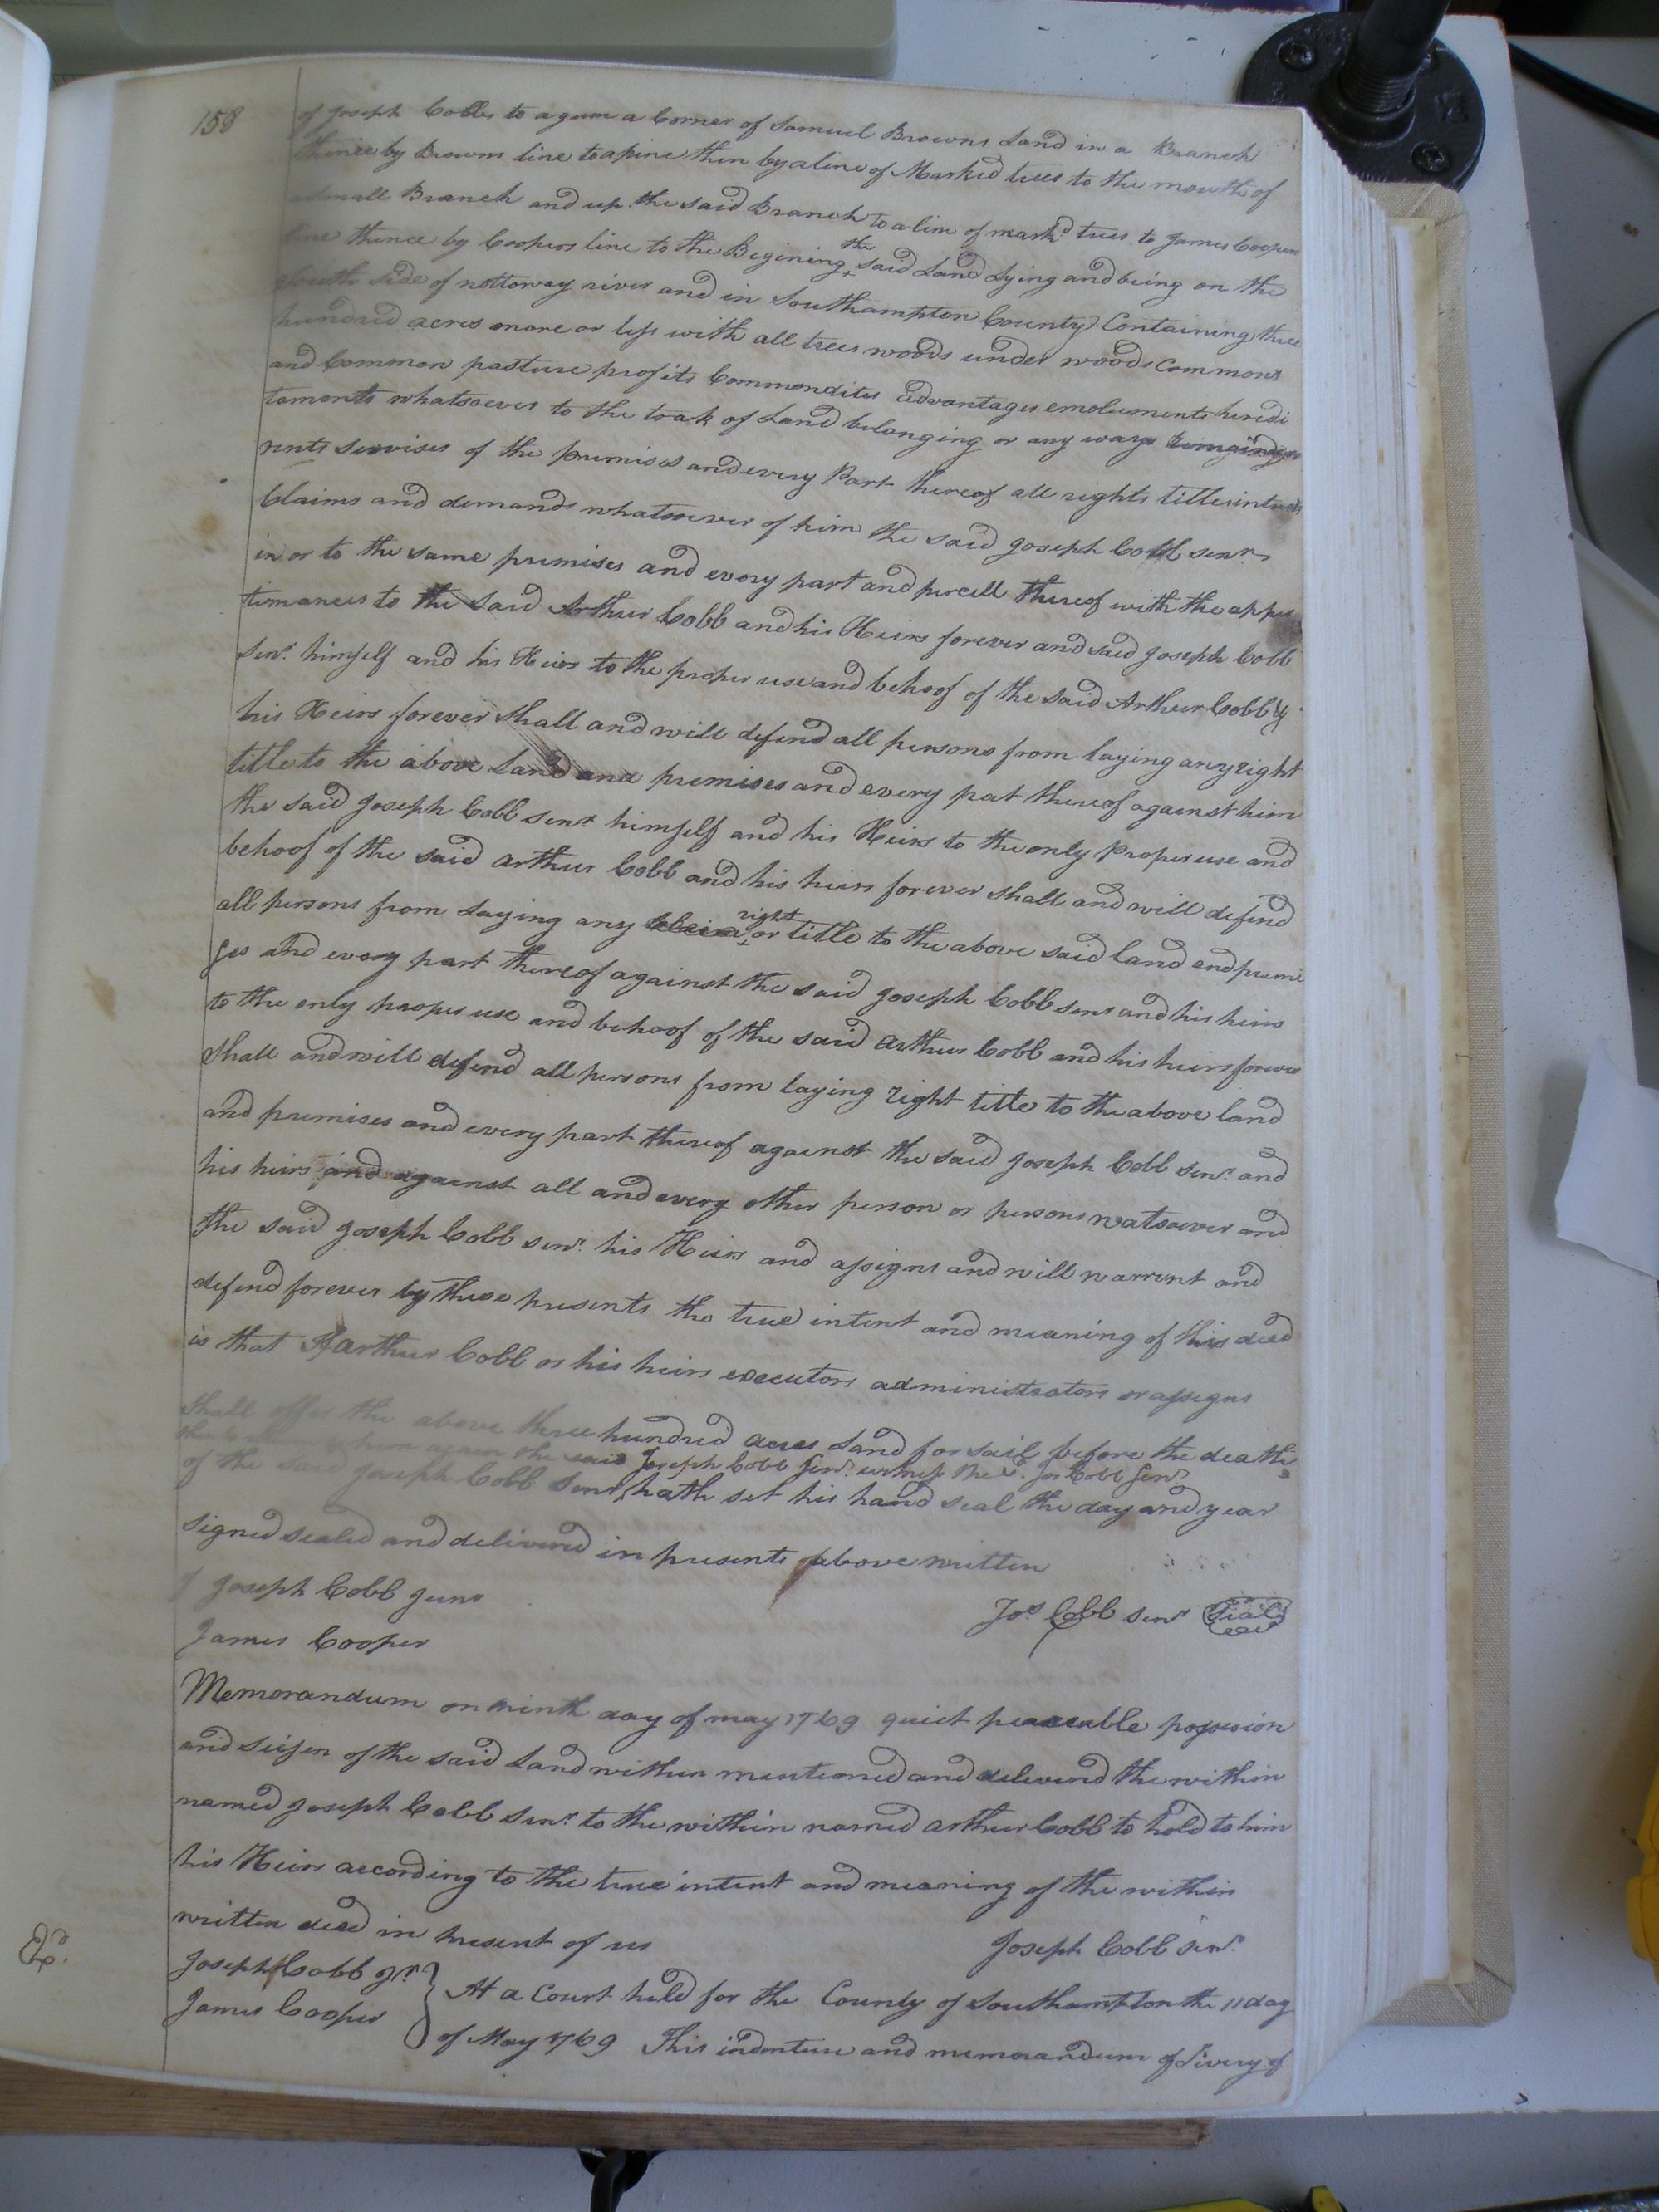 158
of Joseph Cobbs to a gum a Corner of Samuel Browns Land in a Branch
thence by Browns line to a pine then by a line of Marked trees to the mouth of
a small Branch and up the said Branch to a line of markd trees to James Coopers
line thence by Coopers line to the Begining the said Land Lying and being on the
South side of nottoway river and in Southampton County Containing three
hundred acres more or less with all trees woods under woods Commons
and Common pasture profits Commondites advantages emoluments heredi
taments whatsoever to the trak of Land belonging or any ways
rents servises of the premises and every Part thereof all rights title intrest
Claims and demands whatsoever of him the said Joseph Cobb senr
in or to the same premises and every part and percell thereof with the appu
tinances to the said Arthur Cobb and his Heirs forever and said Joseph Cobb
Senr himself and his Heirs to the proper use and behoof of the said Arthur Cobb &
his Heirs forever Shall and will defend all persons from laying any right
title to the above Land and premises and every pat thereof against him
the said Joseph Cobb senr himself and his Heirs to the only Proper use and
behoof of the said Arthur Cobb and his heirs forever shall and will defend
all persons from Laying any claim right or title to the above said land and premi
ses and every part thereof against the said Joseph Cobb senr and his heirs
to the only proper use and behoof of the said Arthur Cobb and his heirs forever
Shall and will defend all persons from laying right title to the above land
and premises and every part thereof against the said Joseph Cobb senr and
his heirs and against all and every other person or persons watsoever and
the said Joseph Cobb senr his Heirs and assigns and will warrent and
defend forever by these presents the true intent and meaning of this deed
is that Arthur Cobb or his heirs executors administrators or assigns
Shall offer the above three hundred acres Land for sail before the death
him again the said Joseph Cobb Senr witness the sd Jos Cobb Senr
of the said Joseph Cobb Senr hath set his hand seal the day and year
Signed sealed and delivered in presents above written
J Joseph Cobb Junr
Jos Cobb senr Seal
James Cooper
Memorandum on ninth day of may 1769 quiet peaceable possesion
and seisen of the said Land within mentioned and delivered the within
named Joseph Cobb Senr to the within named Arthur Cobb to hold to him
his Heirs according to the true intent and meaning of the within
written deed in present of us
Joseph Cobb senr
Joseph Cobb Jr
James Cooper
At a Court held for the County of Southampton the 11 day
of May 1769 This indenture and memorandum of Livery of